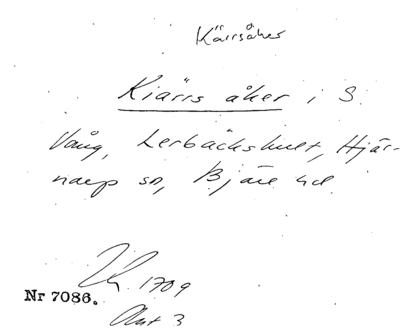 Kärrsåker
Kiärrs åker i S.
Vång, Lerbäckshult, Hjär-
narp sn, Bjäre hd.
1709
Nr 7086.
Akt 3